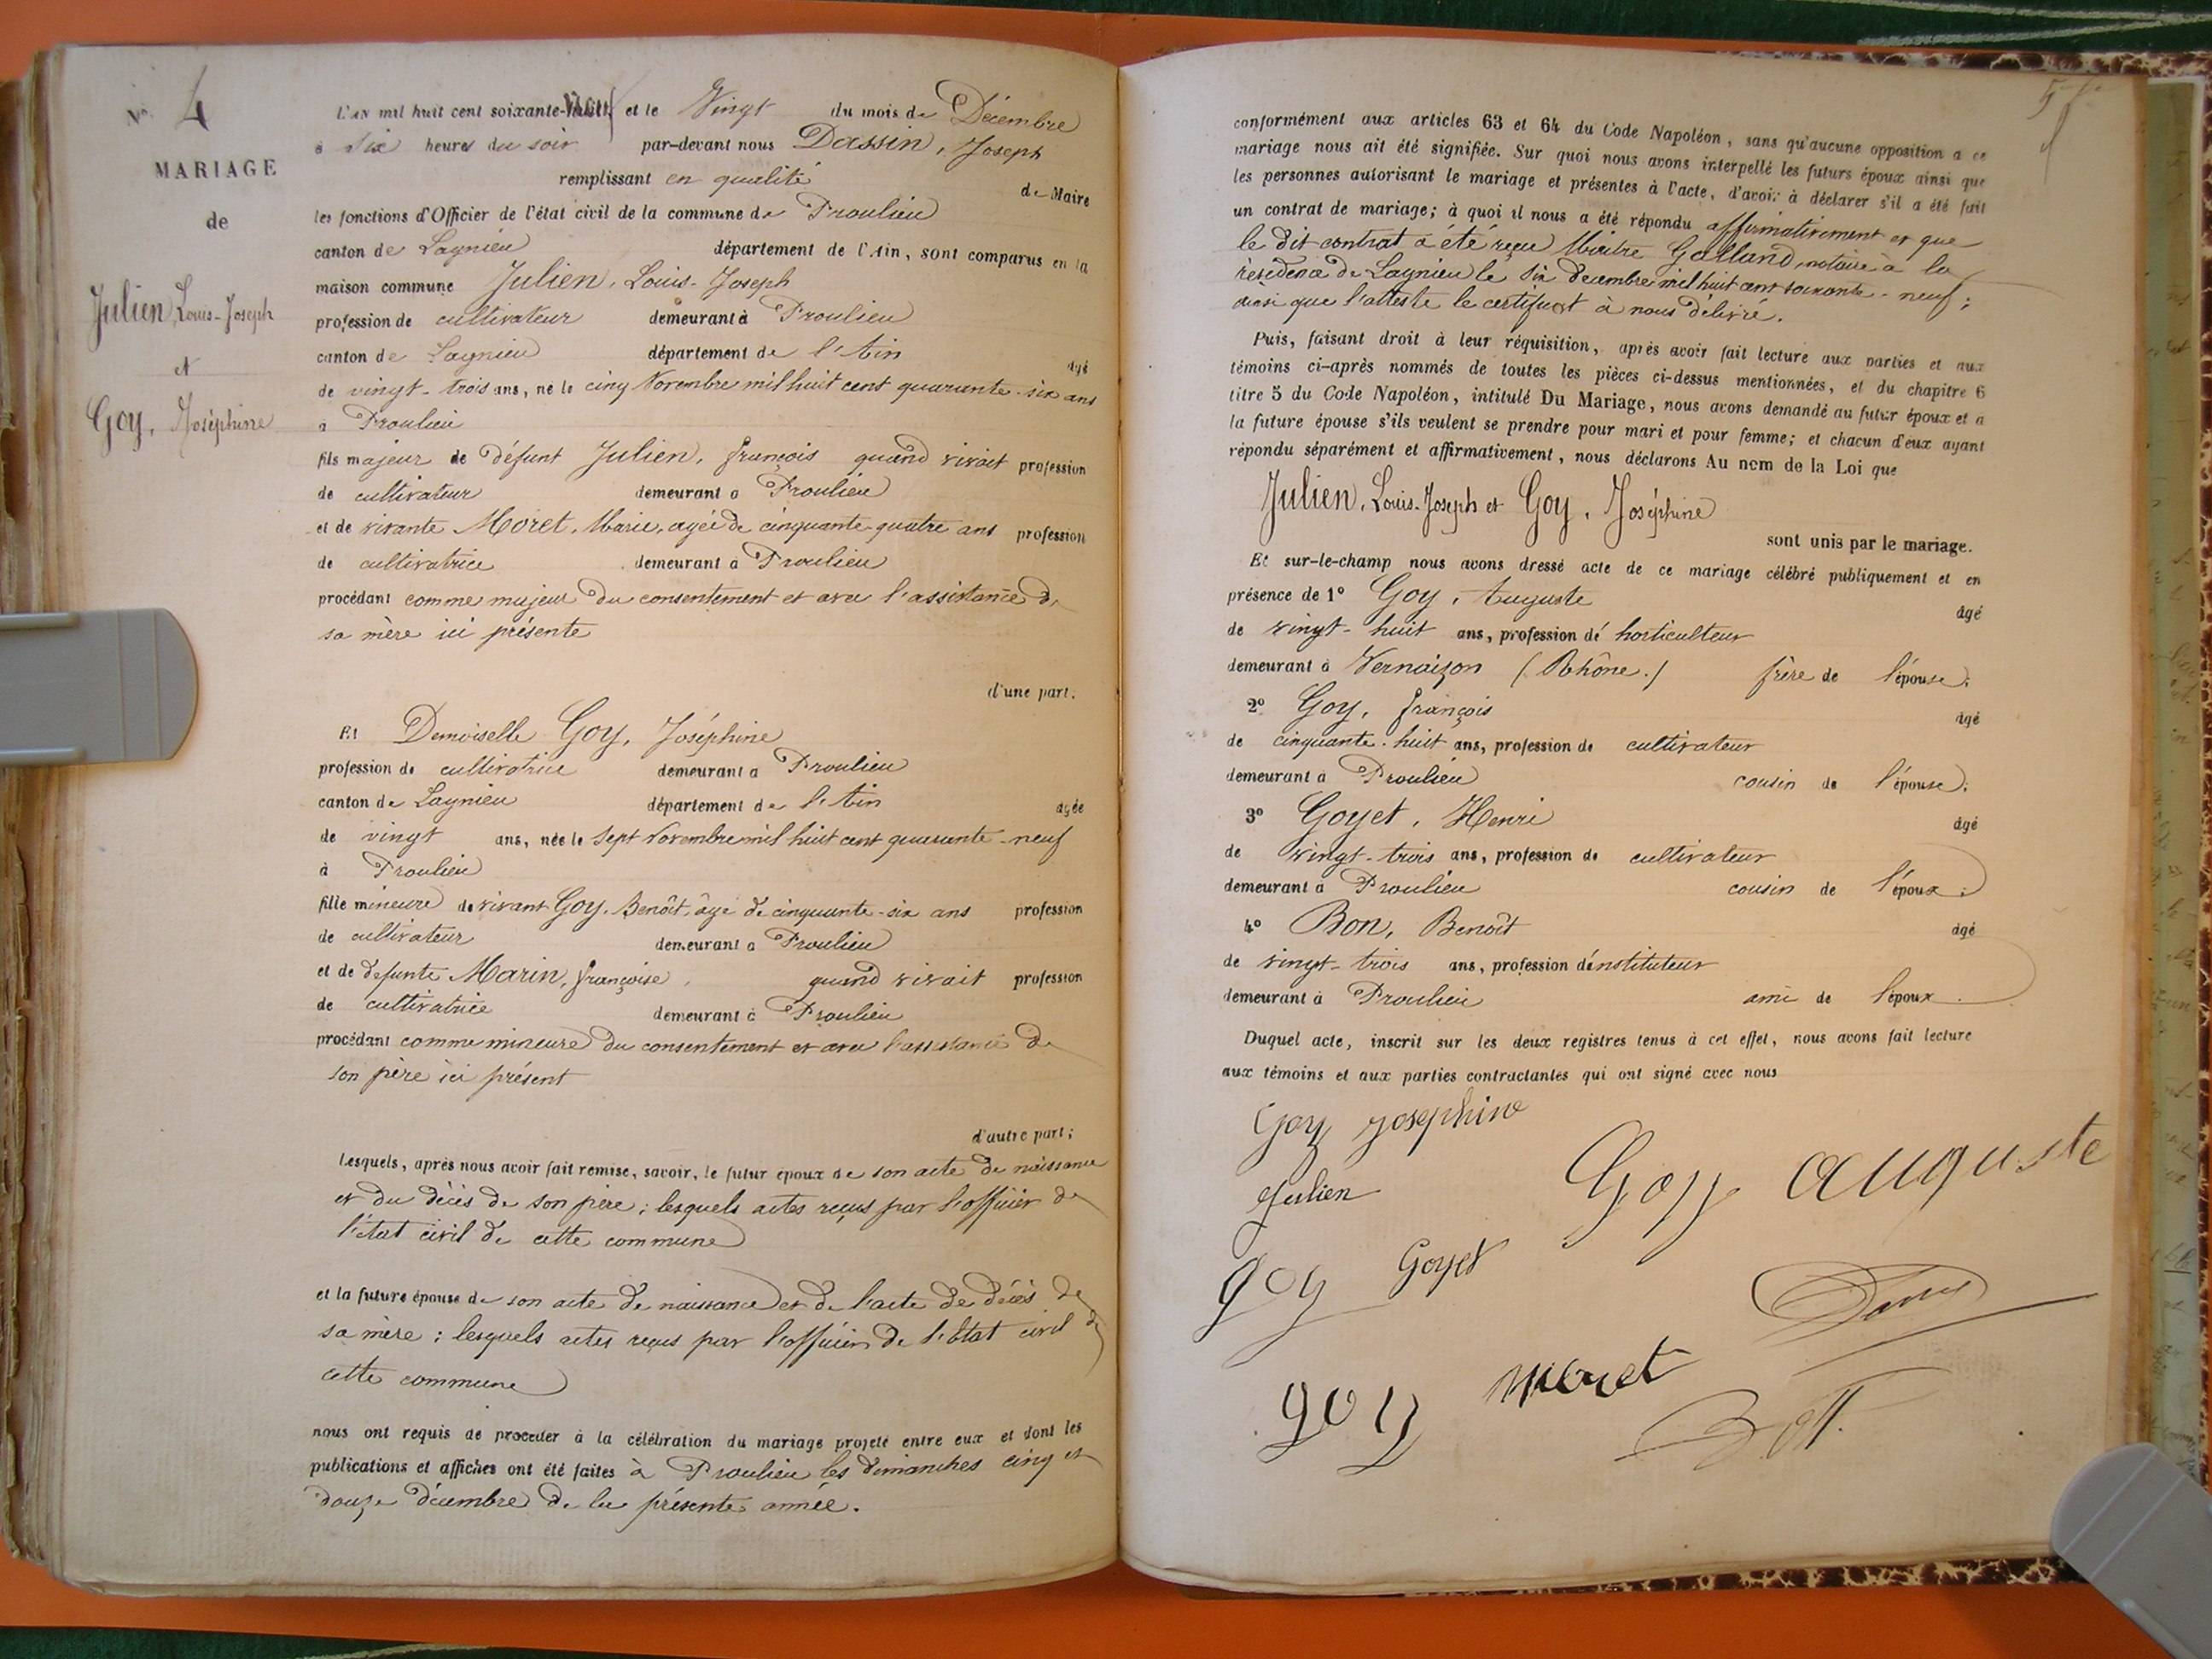 N° 4
MARIAGE
de
Julien, Louis-Joseph
et
Goy, Joséphine
L'AN mil huit cent soixante-neuf et le Vingt du mois de Décembre
à Six heures du soir par-devant nous Dassin, Joseph
remplissant en qualité de Maire
les fonctions d'Officier de l'état civil de la commune de Proulieu
canton de Lagnieu département de l'Ain, sont comparus en la
maison commune Julien, Louis-Joseph
profession de cultivateur demeurant à Proulieu
canton de Lagnieu département de l'Ain âgé
de vingt-trois ans, né le cinq Novembre mil huit cent quarante-six ans
à Proulieu
fils majeur de défunt Julien, françois quand vivait profession
de cultivateur demeurant à Proulieu
et de vivante Moret, Marie, agée de cinquante-quatre ans profession
de cultivatrice demeurant à Proulieu
procédant comme majeur du consentement et avec l'assistance de
sa mère ici présente
d'une part.
Et Demoiselle Goy, Joséphine
profession de cultivatrice demeurant à Proulieu
canton de Lagnieu département de l'Ain agée
de vingt ans, née le Sept Novembre mil huit cent quarante-neuf
à Proulieu
fille mineure de vivant Goy, Benoît, âgé de cinquante-six ans profession
de cultivateur demeurant à Proulieu
et de defunte Marin, françoise, quand vivait profession
de cultivatrice demeurant à Proulieu
procédant comme mineure du consentement et avec l'assistance de
son père ici présent
d'autre part;
Lesquels, après nous avoir fait remise, savoir, le futur époux de son acte de naissance
et du décès de son père; lesquels actes reçus par l'officier de
l'état civil de cette commune
et la future épouse de son acte de naissance et de l'acte de décès de
sa mère; lesquels actes reçus par l'officier de l'Etat civil de
cette commune
nous ont requis de procéder à la célébration du mariage projeté entre eux et dont les
publications et affiches ont été faites à Proulieu les dimanches cinq et
douze décembre de la présente année.
conformément aux articles 63 et 64 du Code Napoléon, sans qu'aucune opposition à ce
mariage nous ait été signifiée. Sur quoi nous avons interpellé les futurs époux ainsi que
les personnes autorisant le mariage et présentes à l'acte, d'avoir à déclarer s'il a été fait
un contrat de mariage; à quoi il nous a été répondu affirmativement et que
le dit contrat a été reçu Maître Galland, notaire à la
résidence de Lagnieu le six decembre mil huit cent soixante-neuf;
ainsi que l'atteste le certificat à nous délivré.
Puis, faisant droit à leur réquisition, après avoir fait lecture aux parties et aux
témoins ci-après nommés de toutes les pièces ci-dessus mentionnées, et du chapitre 6
titre 5 du Code Napoléon, intitulé Du Mariage, nous avons demandé au futur époux et à
la future épouse s'ils veulent se prendre pour mari et pour femme; et chacun d'eux ayant
répondu séparément et affirmativement, nous déclarons Au nom de la Loi que
Julien, Louis-Joseph et Goy, Joséphine
sont unis par le mariage.
Et sur-le-champ nous avons dressé acte de ce mariage célébré publiquement et en
présence de 1° Goy, Auguste âgé
de vingt-huit ans, profession de horticulteur
demeurant à Vernaison (Rhône.) frère de l'épouse;
2° Goy, François âgé
de cinquante-huit ans, profession de cultivateur
demeurant à Proulieu cousin de l'épouse;
3° Goyet, Henri âgé
de vingt-trois ans, profession de cultivateur
demeurant à Proulieu cousin de l'époux;
4° Bon, Benoît âgé
de vingt-trois ans, profession d'instituteur
demeurant à Proulieu ami de l'époux.
Duquel acte, inscrit sur les deux registres tenus à cet effet, nous avons fait lecture
aux témoins et aux parties contractantes qui ont signé avec nous
Goy josephine
Goy auguste
Julien
goy Goyet
goy Moret